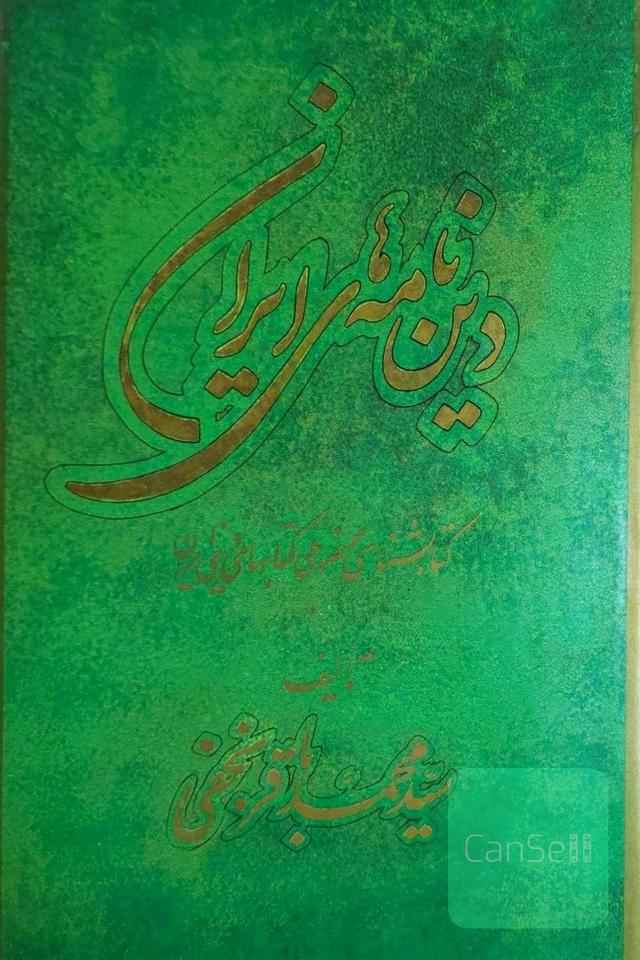 دین نامه های ایران
کتابشناسی فرهنگی کتابهای دینی ایران
تألیف
سید محمد باقر نجفی
CanSell